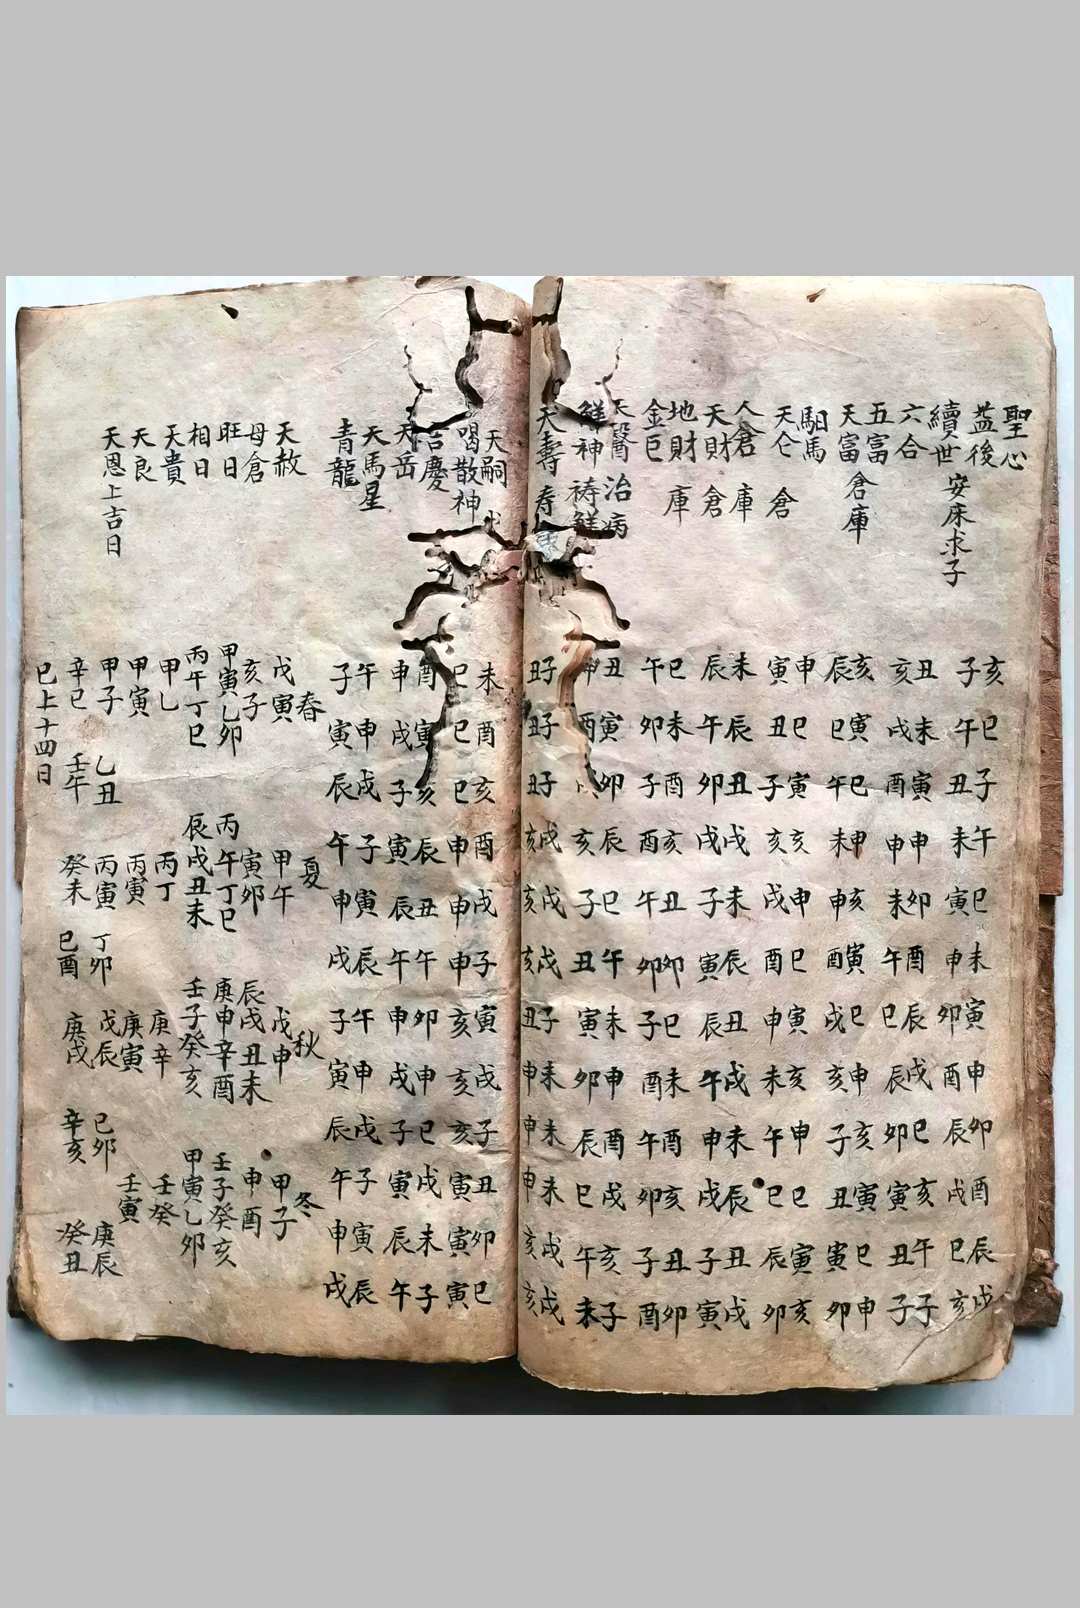 聖心 亥巳子午巳未寅申卯酉辰戌
益後 子午丑未寅申卯酉辰戌巳亥
續世 安床求子 丑未寅申卯酉辰戌巳亥午子
六合 亥戌酉申未午巳辰卯寅丑子
五富 亥寅巳申亥寅巳申亥寅巳申
天富倉庫 辰巳午未申酉戌亥子丑寅卯
馹馬 申巳寅亥申巳寅亥申巳寅亥
天仑 倉 寅丑子亥戌酉申未午巳辰卯
人倉 庫 未辰丑戌未辰丑戌未辰丑戌
天財 倉 辰午卯戌子寅辰午申戌子寅
地財 庫 巳未酉亥丑卯巳未酉亥丑卯
金巨 午卯子酉午卯子酉午卯子酉
天醫 治病 丑寅卯辰巳午未申酉戌亥子
鲜神 祷鲜 申酉戌亥子丑寅卯辰巳午未
天壽 寿 子子子戌戌戌子未未未戌戌
丑丑丑亥亥亥丑申申申亥亥
天嗣 未酉亥酉戌子寅戌子丑卯巳
喝散神 巳巳巳申申申亥亥亥寅寅寅
吉慶 酉寅亥辰丑午卯申巳戌未子
天岳 申戌子寅辰午申戌子寅辰午
天馬星 午申戌子寅辰午申戌子寅辰
青龍 子寅辰午申戌子寅辰午申戌
春 夏 秋 冬
天赦 戊寅 甲午 戊申 甲子
母倉 亥子 寅卯 辰戌丑未 申酉
旺日 甲寅乙卯 丙午丁巳 庚申辛酉 壬子癸亥
相日 丙午丁巳 辰戌丑未 壬子癸亥 甲寅乙卯
天貴 甲乙 丙丁 庚辛 壬癸
天良 甲寅 丙寅 庚寅 壬寅
天恩上吉日 甲子 乙丑 丙寅 丁卯 戊辰 己卯 庚辰
辛巳 壬午 癸未 己酉 庚戌 辛亥 癸丑
已上十四日